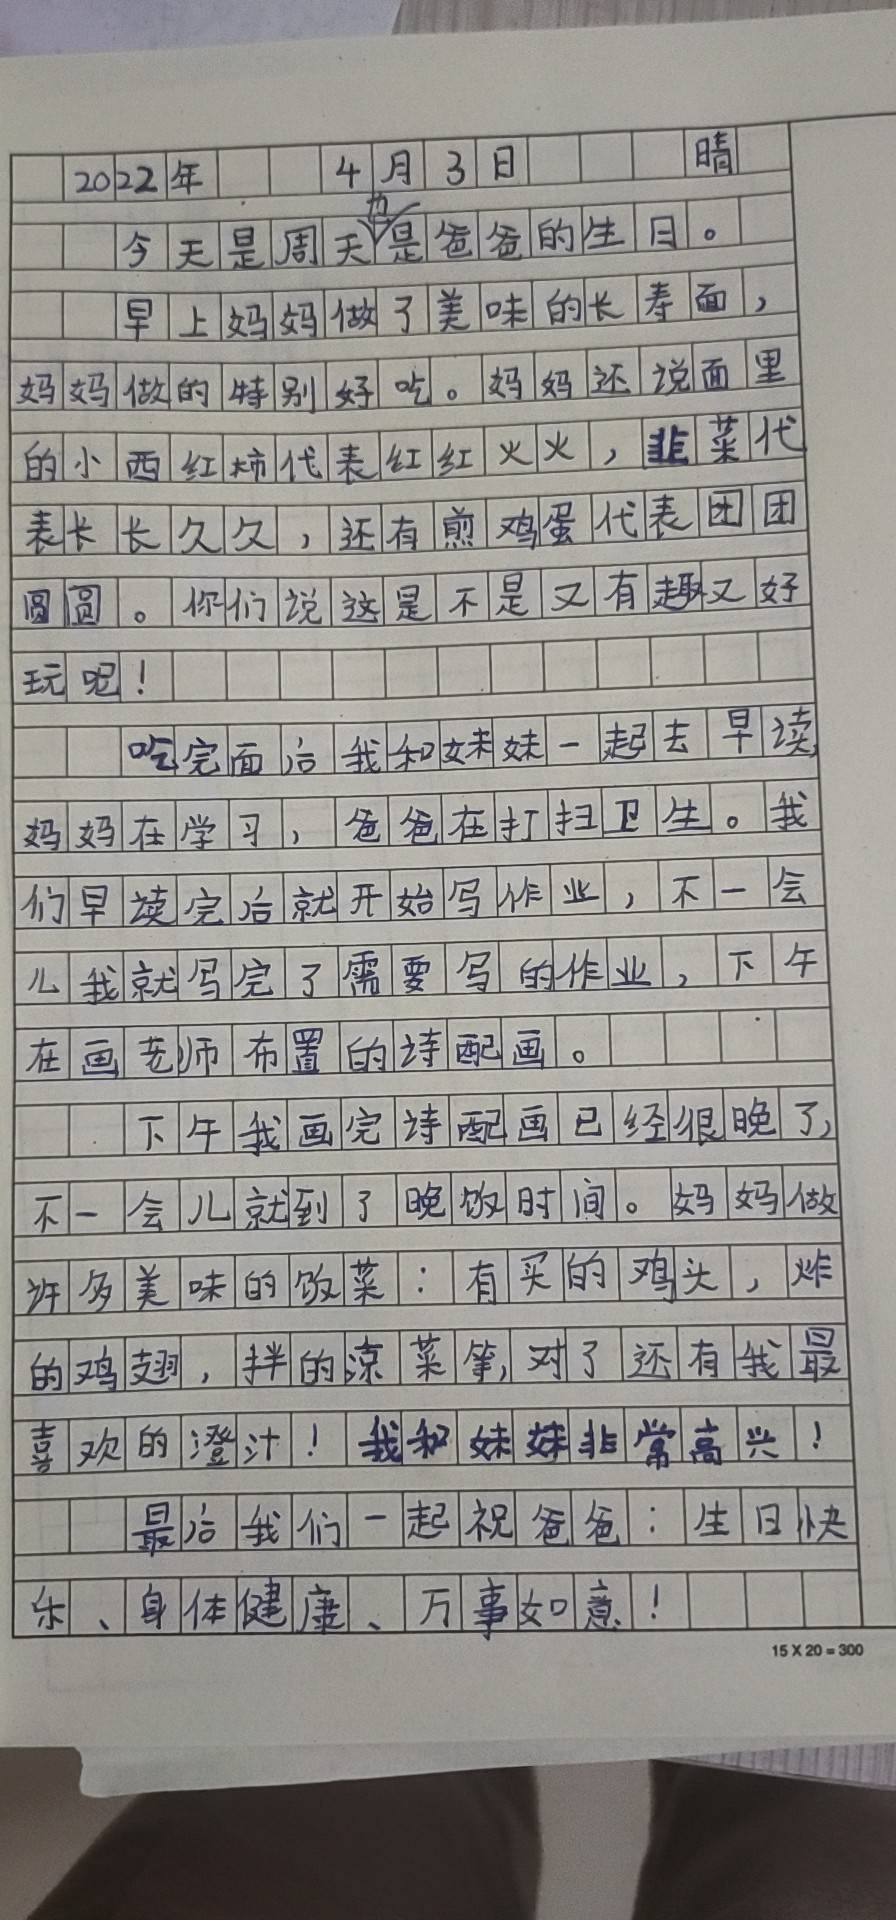 2022年 4月3日 晴
今天是周天也是爸爸的生日。
早上妈妈做了美味的长寿面，
妈妈做的特别好吃。妈妈还说面里
的小西红柿代表红红火火，韭菜代
表长长久久，还有煎鸡蛋代表团团
圆圆。你们说这是不是又有趣又好
玩呢！
吃完面后我和妹妹一起去早读，
妈妈在学习，爸爸在打扫卫生。我
们早读完后就开始写作业，不一会
儿我就写完了需要写的作业，下午
在画老师布置的诗配画。
下午我画完诗配画已经很晚了，
不一会儿就到了晚饭时间。妈妈做
许多美味的饭菜：有买的鸡头，炸
的鸡翅，拌的凉菜等，对了还有我最
喜欢的澄汁！我和妹妹非常高兴！
最后我们一起祝爸爸：生日快
乐、身体健康、万事如意！
15×20=300